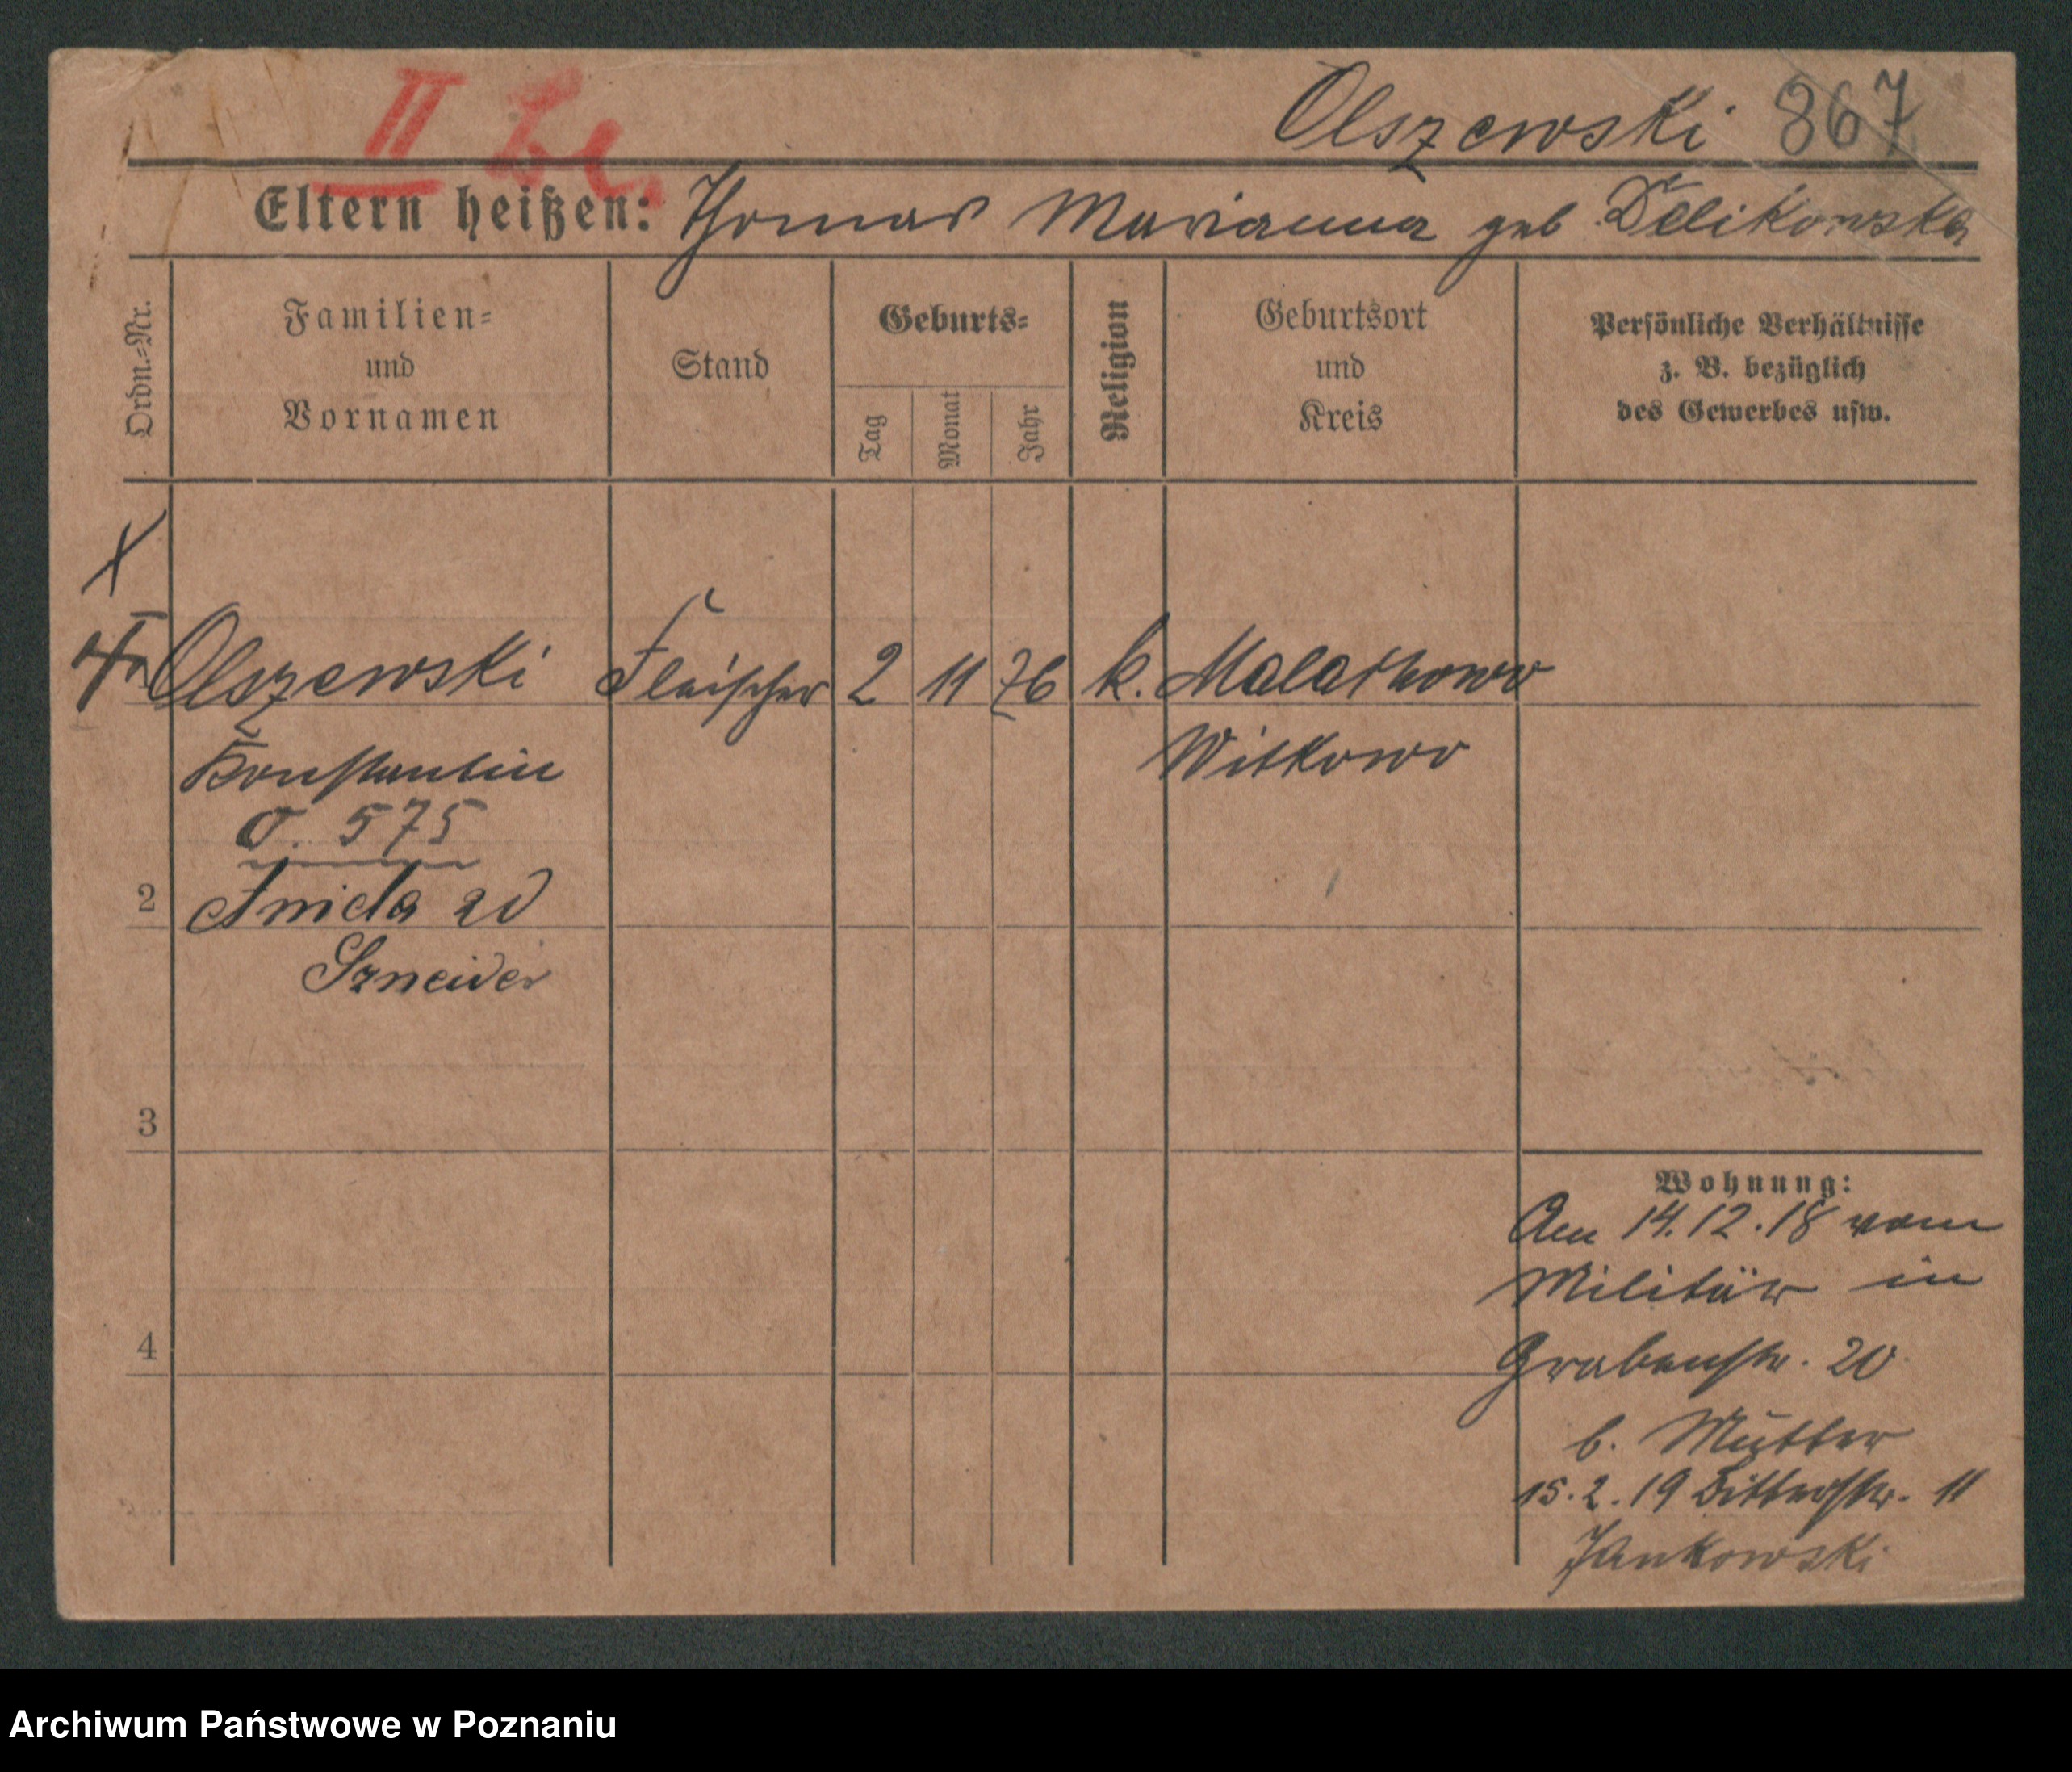 II
Olszewski 867
Eltern heißen: Thomas Marianna geb Delikowska
Ordn.-Nr.
Familien-
und
Vornamen
Stand
Geburts-
Tag
Monat
Jahr
Religion
Geburtsort
und
Kreis
Persönliche Verhältnisse
z. B. bezüglich
des Gewerbes usw.
Olszewski Fleischer 2 11 76 k. Malachowo
Konstantin Witkowo
O. 575
2
Aniela
Szneider
3
4
Wohnung:
Am 14.12.18 vom
Militär in
Grabenstr. 20
b. Mutter
15.2.19 Bitterstr. 11
Jankowski
Archiwum Państwowe w Poznaniu